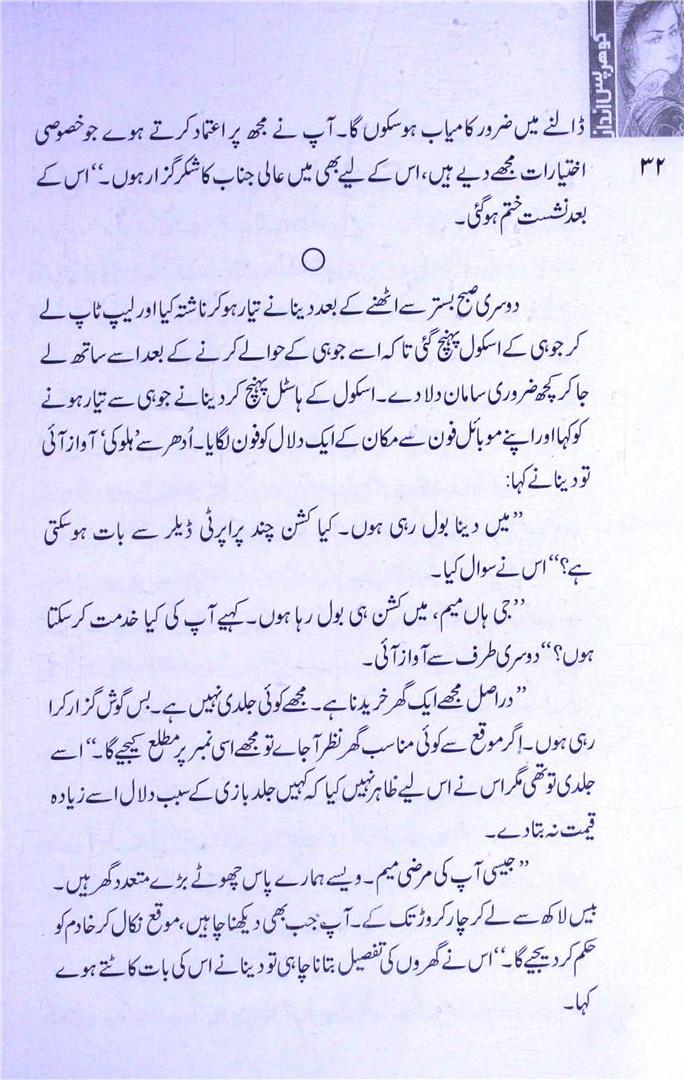 گوهر پس انداز
۳۲
ڈالنے میں ضرور کامیاب ہوسکوں گا۔ آپ نے مجھ پر اعتماد کرتے ہوے جو خصوصی
اختیارات مجھے دیے ہیں، اس کے لیے بھی میں عالی جناب کا شکر گزار ہوں۔“ اس کے
بعد نشست ختم ہوگئی۔
دوسری صبح بستر سے اٹھنے کے بعد دینا نے تیار ہوکر ناشتہ کیا اور لیپ ٹاپ لے
کر جوہی کے اسکول پہنچ گئی تاکہ اسے جوہی کے حوالے کرنے کے بعد اسے ساتھ لے
جا کر کچھ ضروری سامان دلا دے۔ اسکول کے ہاسٹل پہنچ کر دینا نے جوہی سے تیار ہونے
کو کہا اور اپنے موبائل فون سے مکان کے ایک دلال کو فون لگایا۔ اُدھر سے ’ہلو کی‘ آواز آئی
تو دینا نے کہا:
”میں دینا بول رہی ہوں۔ کیا کشن چند پراپرٹی ڈیلر سے بات ہوسکتی
ہے؟“ اس نے سوال کیا۔
”جی ہاں میم، میں کشن ہی بول رہا ہوں۔ کہیے آپ کی کیا خدمت کرسکتا
ہوں؟“ دوسری طرف سے آواز آئی۔
”دراصل مجھے ایک گھر خریدنا ہے۔ مجھے کوئی جلدی نہیں ہے۔ بس گوش گزار کرا
رہی ہوں۔ اگر موقع سے کوئی مناسب گھر نظر آ جاے تو مجھے اسی نمبر پر مطلع کیجیے گا۔“ اسے
جلدی تو تھی مگر اس نے اس لیے ظاہر نہیں کیا کہ کہیں جلد بازی کے سبب دلال اسے زیادہ
قیمت نہ بتا دے۔
”جیسی آپ کی مرضی میم۔ ویسے ہمارے پاس چھوٹے بڑے متعدد گھر ہیں۔
بیس لاکھ سے لے کر چار کروڑ تک کے۔ آپ جب بھی دیکھنا چاہیں، موقع نکال کر خادم کو
حکم کر دیجیے گا۔“ اس نے گھروں کی تفصیل بتانا چاہی تو دینا نے اس کی بات کاٹتے ہوے
کہا۔